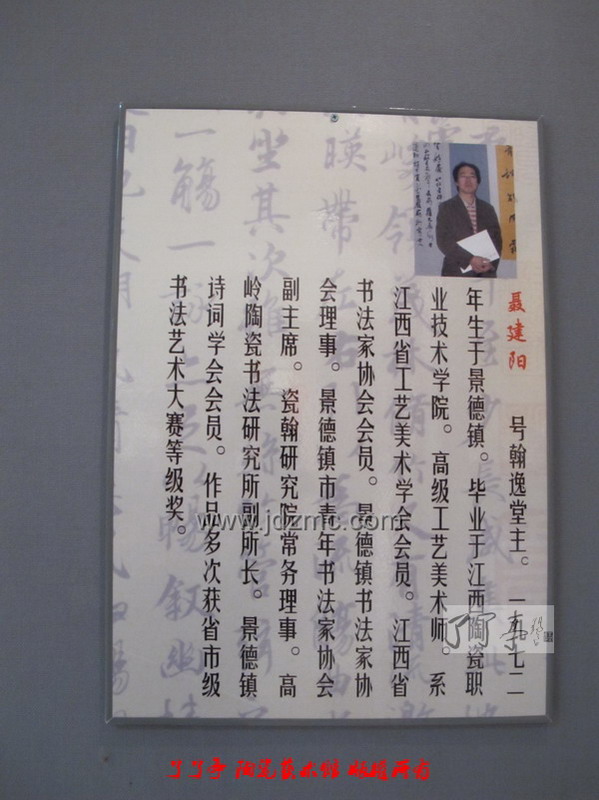 聂建阳 号翰逸堂主。一九七二
年生于景德镇。毕业于江西陶瓷职
业技术学院。高级工艺美术师。系
江西省工艺美术学会会员。江西省
书法家协会会员。景德镇书法家协
会理事。景德镇市青年书法家协会
副主席。瓷翰研究院常务理事。高
岭陶瓷书法研究所副所长。景德镇
诗词学会会员。作品多次获省市级
书法艺术大赛等级奖。
www.jdzmc.com
陶瓷美术馆 版权所有